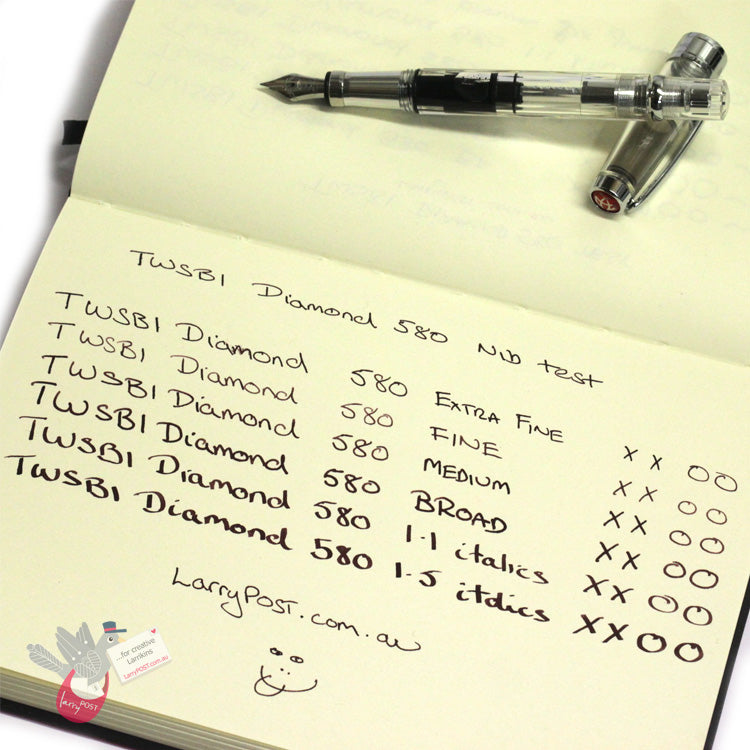 TWSBI Diamond 580 Nib test
TWSBI Diamond 580 EXTRA FINE XX OO
TWSBI Diamond 580 FINE XX OO
TWSBI Diamond 580 MEDIUM XX OO
TWSBI Diamond 580 BROAD XX OO
TWSBI Diamond 580 1.1 italics XX OO
TWSBI Diamond 580 1.5 italics XXOO
LarryPOST.com.au
...for creative
Larrikins
LarryPOST.com.au
larryPOST